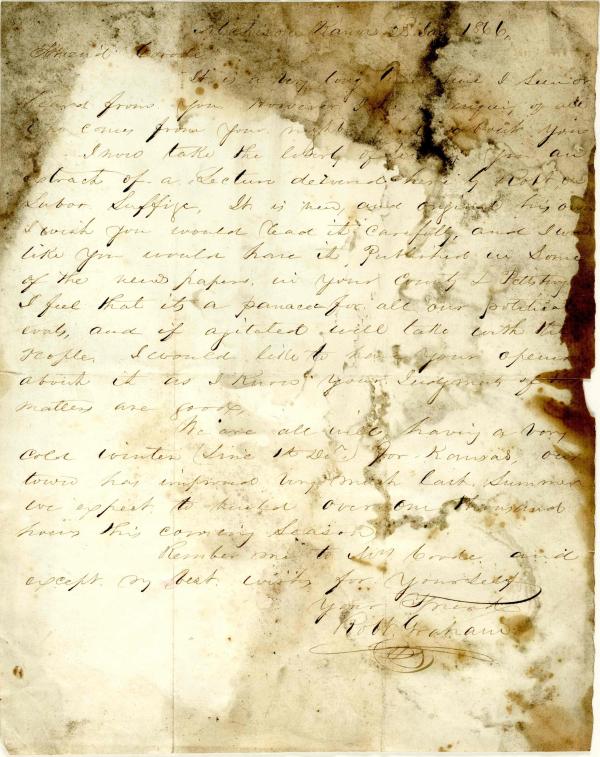 Atchison Kans 28 Jan 1866,
Friend Covode
It is a very long time since I seen or
heard from you However I
comes from your about you
I now take the liberty of you an
extract of a Lecture delivered here by on
Labor Suffige, It is new and original his own
I wish you would read it carefully, and I would
like you would have it Published in Some
of the news papers, in your County & Pittsburg
I feel that it is a panacea for all our political
evals, and if agitated will take with the
People. I would like to have your openion
about it as I Know your Judgment of
matters are good.
We are all well having a very
cold winter (Sinc 1st Dec) for Kansas, our
town has improved very much last Summer
we expect to builed over one thousand
houses this coming Season
Rember me to Mrs Covode and
except my best wishes for yourself
Your Friend
Robt. Graham